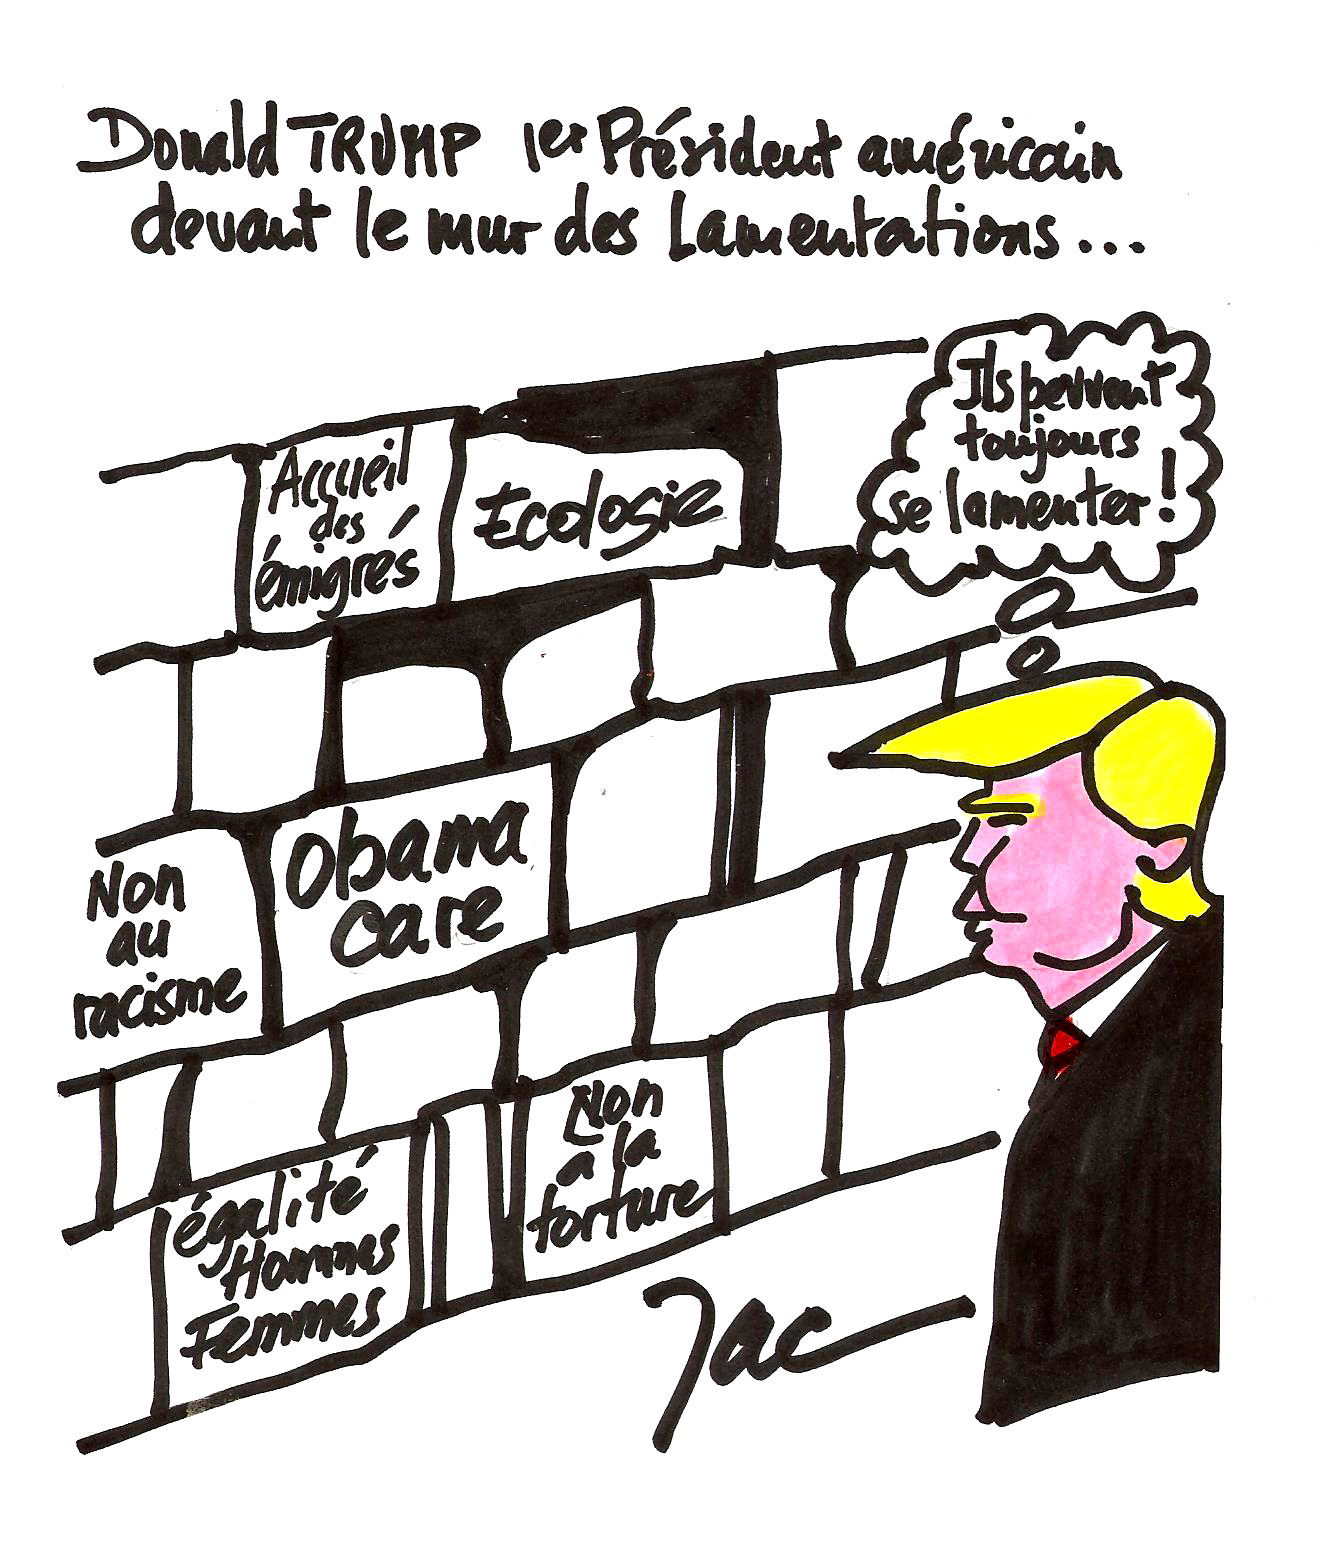 Donald TRUMP 1er Président américain
devant le mur des Lamentations...
Ils peuvent
toujours
se lamenter!
Accueil
des
émigrés
Ecologie
Obama
care
Non
au
racisme
Non
a la
torture
égalité
Hommes
Femmes
Jac